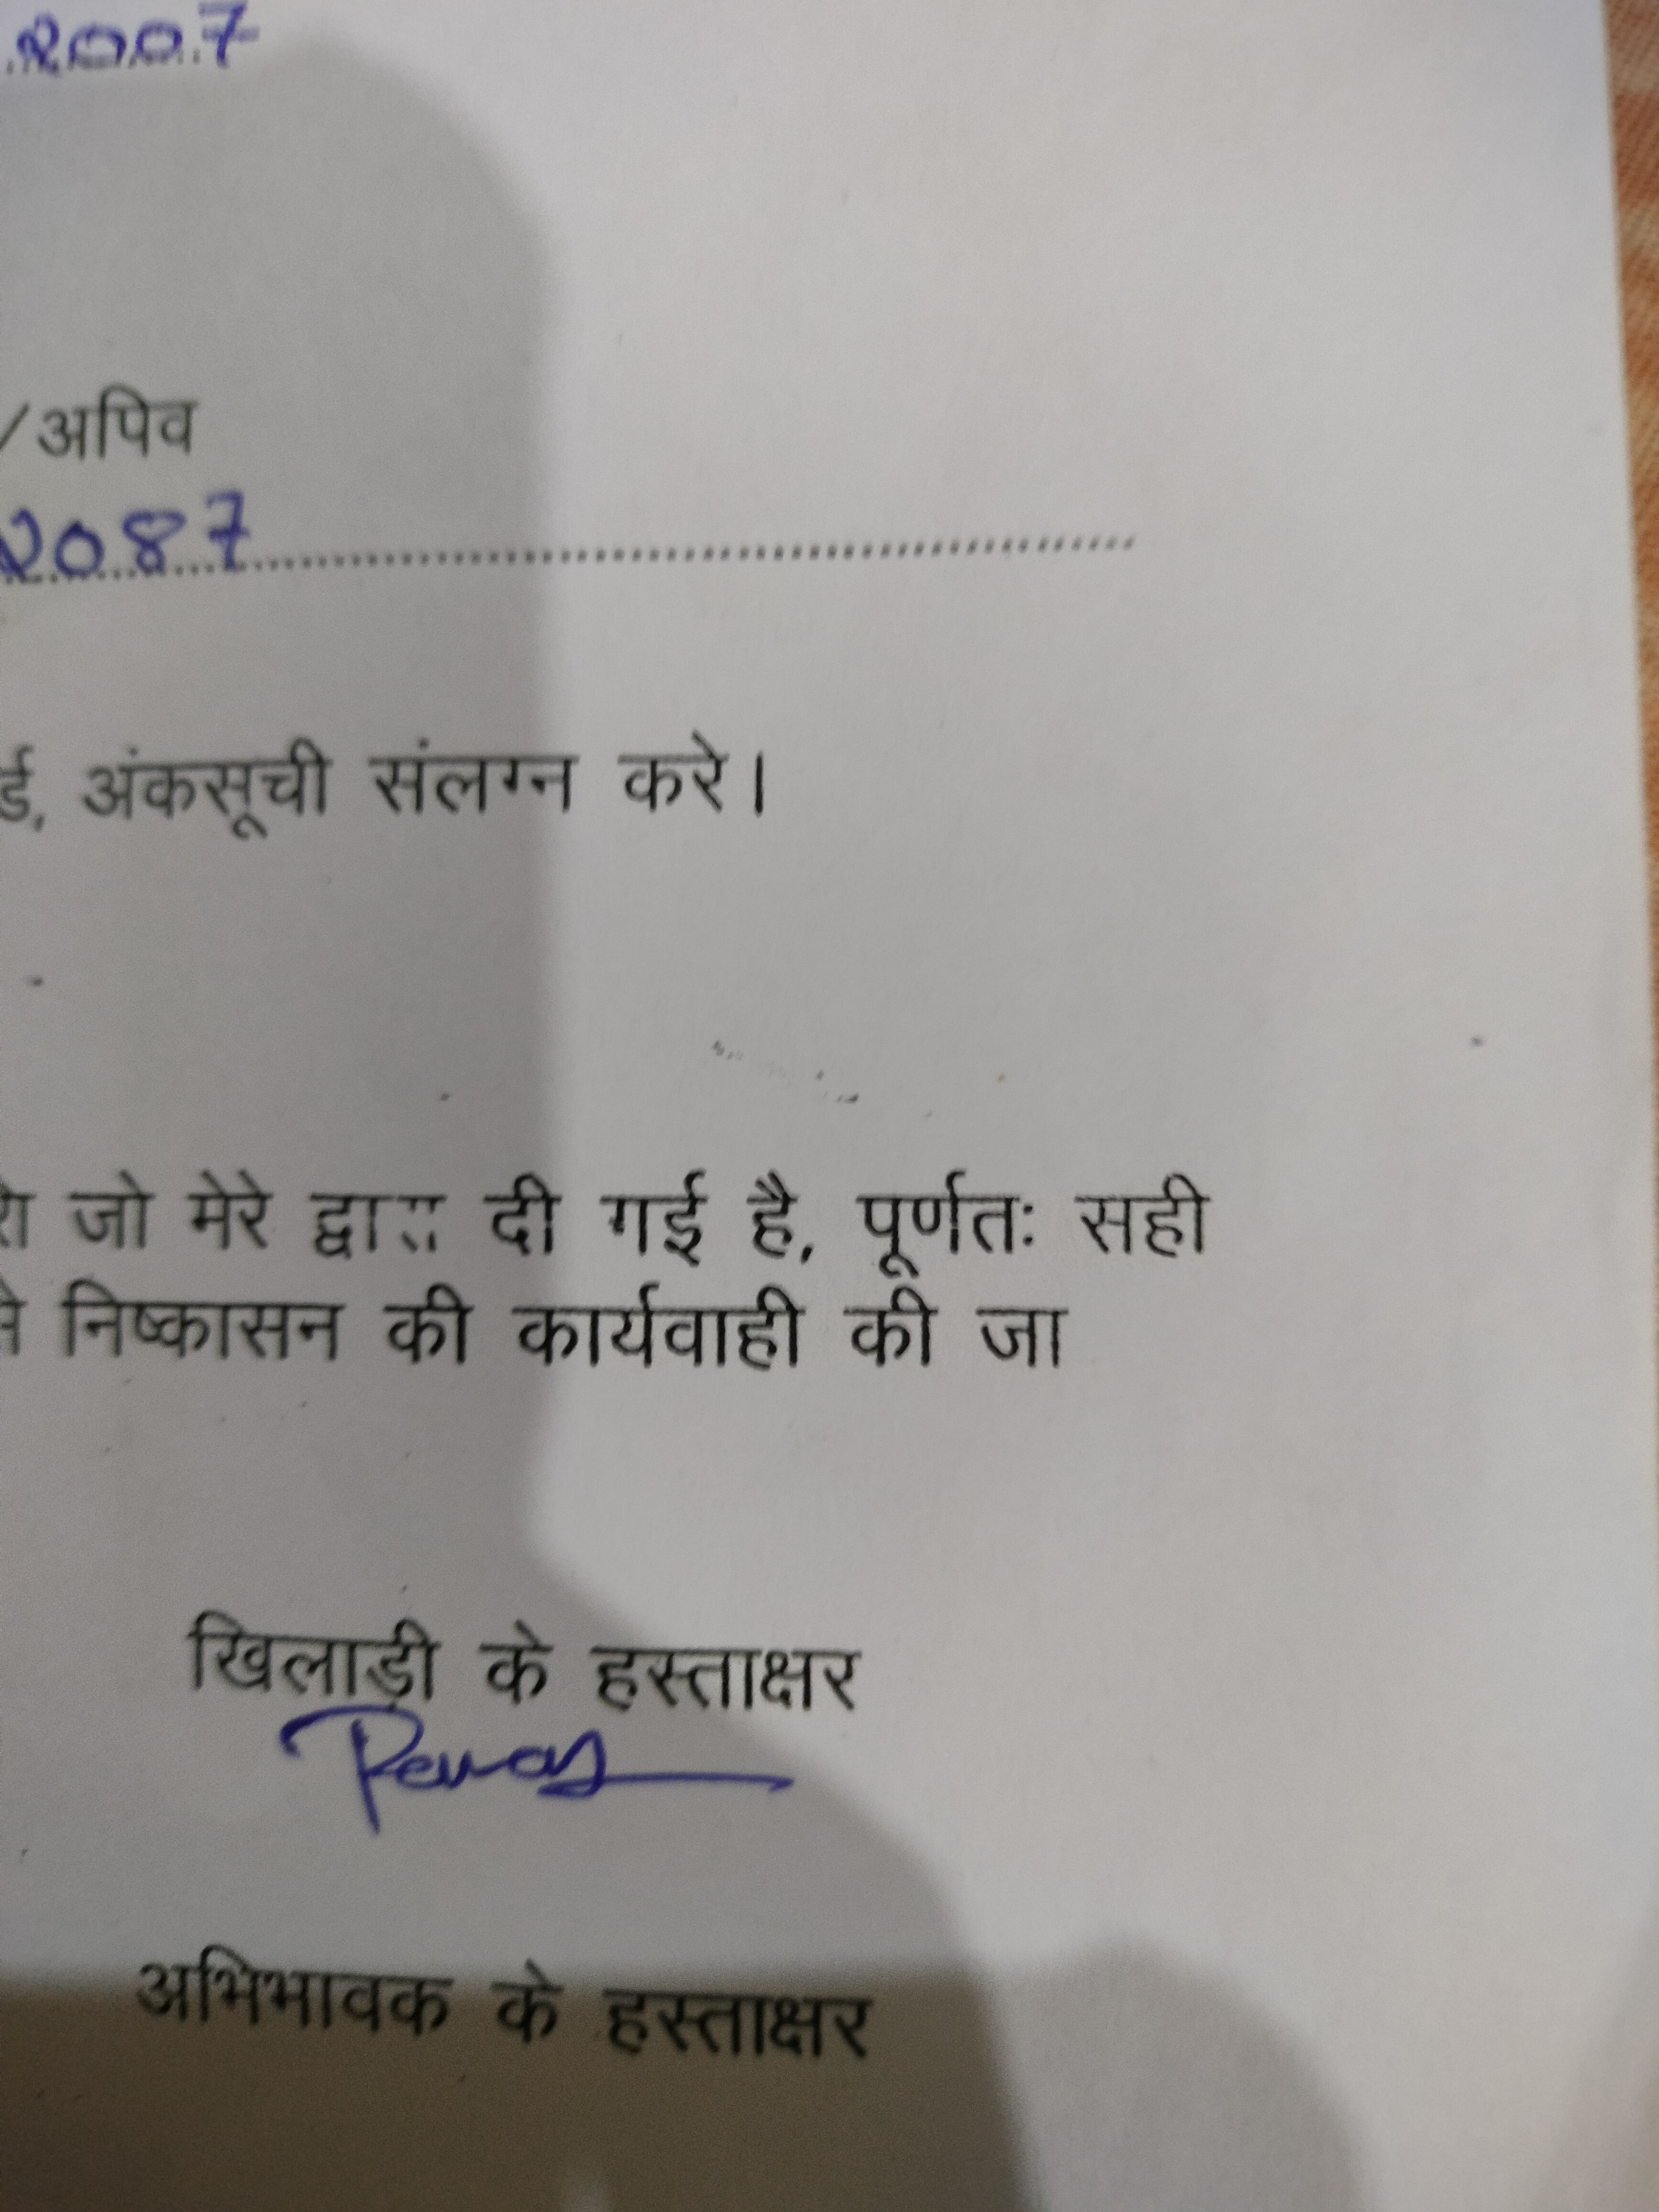 2007
/अपिव
2087
र्ड, अंकसूची संलग्न करे।
जो मेरे द्वारा दी गई है, पूर्णतः सही
निष्कासन की कार्यवाही की जा
खिलाड़ी के हस्ताक्षर
अभिभावक के हस्ताक्षर